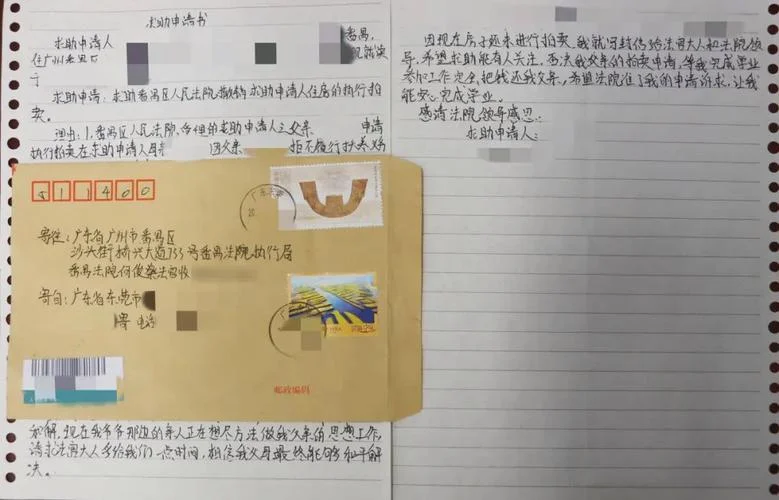 求助申请书
求助申请人
番禺,
住广州番禺区
现就读
于
求助申请:求助番禺区人民法院撤销求助申请人住房的执行拍
卖。
理由:1.番禺区人民法院,受理的求助申请人之父亲 申请
执行拍卖在求助申请人母亲 因父亲 拒不履行扶养义
511400
寄往:广东省广州市番禺区
沙头街桥兴大道733号番禺法院执行局
番禺法院何俊燊法官收
寄自:广东省东莞市
寄 电话
邮政编码
和解。现在我爷爷那边的亲人正在想尽方法做我父亲的思想工作,
请求法官大人多给我们一点时间,相信我父母最终能够和平解
决。
因现在房子还未进行拍卖,我就写封信给法官大人和法院领
导,希望求助能有人关注,否决我父亲的拍卖申请,等我完成学业
参加工作完全把钱还我父亲,希望法院准了我的申请诉求,让我
能安心完成学业。
感请法院领导感恩
求助申请人: